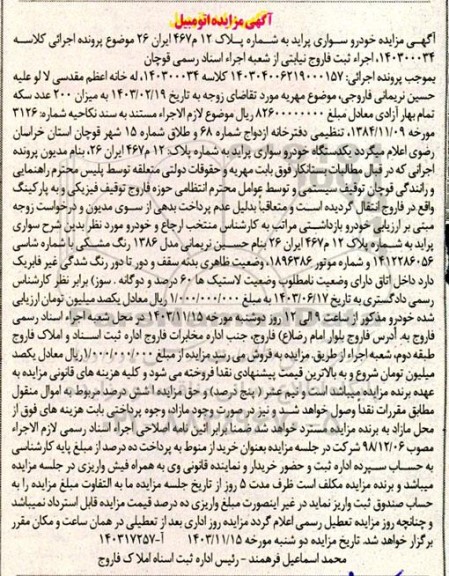 آگهی مزایده اتومبیل
آگهـی مزایده خودرو سـواری پراید به شـماره پـلاک ۱۲ م۴۶۷ ایران ۲۶ موضوع پرونده اجرائی کلاسه
۱۴۰۳۰۰۰۳۴، اجراء ثبت فاروج نیابتی از شعبه اجراء اسناد رسمی قوچان
بموجب پرونده اجرائی: ۱۴۰۳۰۴۰۰۶۲۱۹۰۰۰۱۵۷ کلاسه ۱۴۰۳۰۰۰۳۴، له خانم اعظم مقدسی لا لو علیه
حسین نریمانی فاروجی، موضوع مهریه مورد تقاضای زوجه به تاریخ ۱۴۰۳/۰۲/۱۹ به میزان ۲۰۰ عدد سکه
تمام بهار آزادی معادل مبلغ ۸۲۶۰۰۰۰۰۰۰۰ ریال موضوع لازم الاجراء مستند به سند نکاحیه شماره: ۳۱۲۶
مورخه ۱۳۸۴/۱۱/۰۹، تنظیمی دفترخانه ازدواج شماره ۶۸ و طلاق شماره ۱۵ شهر قوچان استان خراسان
رضوی اعلام میگردد یکدستگاه خودرو سواری پراید به شماره پلاک: ۱۲ م۴۶۷ ایران ۲۶، بنام مدیون پرونده
اجرائی که در قبال مطالبات بستانکار فوق بابت مهریه و حقوقات دولتی متعلقه توسط پلیس محترم راهنمایی
و رانندگی قوچان توقیف سیستمی و توسط عوامل محترم انتظامی حوزه فاروج توقیف فیزیکی و به پارکینگ
واقع در فاروج انتقال گردیده است و متعاقباً بدلیل عدم پرداخت بدهی از سوی مدیون و درخواست زوجه
مبنی بر ارزیابی خودرو بازداشتی مراتب به کارشناس منتخب ارجاع و خودرو مورد نظر بدین شرح سواری
پراید به شماره پلاک ۱۲ م۴۶۷ ایران ۲۶ بنام حسین نریمانی مدل ۱۳۸۶ رنگ مشکی با شماره شاسی
۱۴۱۲۲۸۶۰۵۶ و شماره موتور ۱۸۹۶۳۸۶، وضعیت ظاهری بدنه سقف و دور تا دور رنگ شدگی غیر فابریک
دارد داخل اتاق دارای وضعیت نامطلوب وضعیت لاستیک ها ۶۰ درصد و دوگانه . سوز) برابر نظر کارشناس
رسمی دادگستری به تاریخ ۱۴۰۳/۰۶/۱۷ به مبلغ ۱/۰۰۰/۰۰۰/۰۰۰ ریال معادل یکصد میلیون تومان ارزیابی
شده خودرو مذکور از ساعت ۹ الی ۱۲ روز دوشنبه مورخه ۱۴۰۳/۱۱/۱۵ در محل شعبه اجراء اسناد رسمی
فاروج به آدرس فاروج بلوار امام رضا(ع) فاروج، جنب اداره مخابرات فاروج اداره ثبت اسـناد و املاک فاروج
طبقه دوم، شعبه اجراء از طریق، مزایده به فروش می رسد مزایده از مبلغ ۱/۰۰۰/۰۰۰/۰۰۰ ریال معادل یکصد
میلیون تومان شروع و به بالاترین قیمت پیشنهادی نقداً فروخته می شود و کلیه هزینه های قانونی مزایده به
عهده برنده مزایده میباشد است و نیم عشر ( پنج درصد) و حق مزایده (شش درصد مربوط به اموال منقول
مطابق مقررات نقداً وصول خواهد شـد و نیز در صورت وجود مازاد، وجوه پرداختی بابت هزینه های فوق از
محل مازاد به برنده مزایده مسترد خواهد شد ضمناً برابر ائین نامه اصلاحی اجراء اسناد رسمی لازم الاجراء
مصوب ۹۸/۱۲/۰۶ شرکت در جلسه مزایده بعنوان خرید از منوط به پرداخت ده درصد از مبلغ پایه کارشناسی
به حساب سـپرده اداره ثبت و حضور خریدار و نماینده قانونی وی به همراه فیش واریزی در جلسه مزایده
میباشد و برنده مزایده مکلف است ظرف مدت ۵ روز از تاریخ جلسه مزایده ما به التفاوت مبلغ مزایده را به
حساب صندوق ثبت واریز نماید در غیر اینصورت مبلغ واریزی ده درصد قیمت مزایده قابل استرداد نمیباشد
و چنانچه روز مزایده تعطیل رسمی اعلام گردد مزایده روز اداری بعد از تعطیلی در همان ساعت و مکان مقرر
برگزار خواهد شد. تاریخ مزایده دو شنبه مورخه ۱۴۰۳/۱۱/۱۵ آ-۱۴۰۳۱۷۳۵۷
محمد اسماعیل فرهمند - رئیس اداره ثبت اسناد املاک فاروج